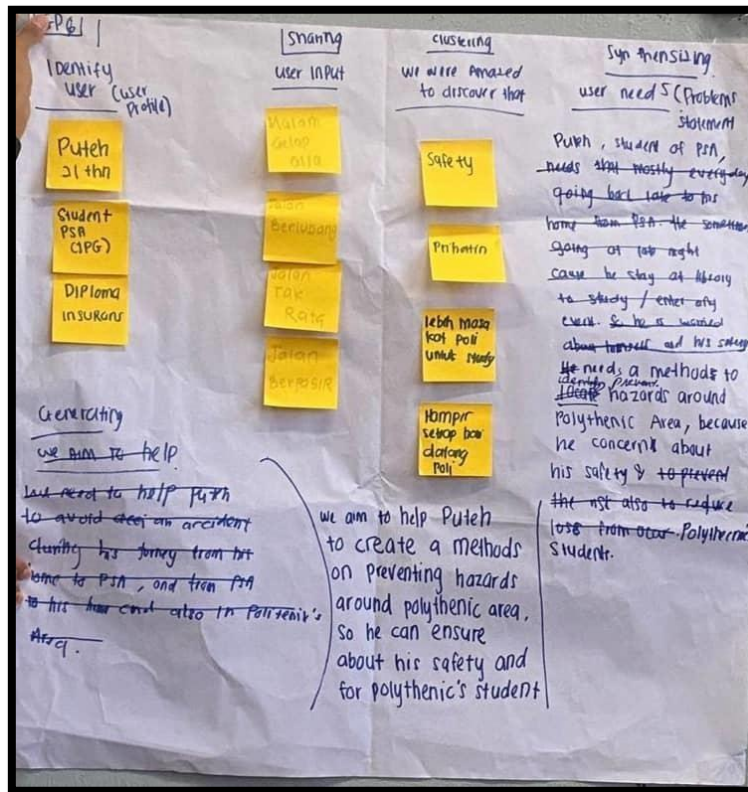 Identify
user (user
profile)
Puteh
21 thn
Student
PSA
(IPG)
DIPloma
insurans
Sharing
user Input
Malam
Gelap
Jalan
Berlubang
Jalan
Tak
Rata
Jalan
BERPASIR
clustering
we were Amazed
to discover that
Safety
Prihatin
lebih masa
kat poli
untuk study
Hampir
setiap hari
datang
Poli
Synthensizing
user needs (Problems
statement
Puteh, student of PSA,
needs that mostly everyday
going back late to his
home from PSA. the sometimes
going at late night
cause he stay at library
to study / enter any
event. So he is worried
about himself and his safety
He needs a methods to
identify prevent
locate hazards around
Polythenic Area, because
he concern's about
his safety & to prevent
the risk also to reduce
loss from occur Polythenic
Students.
Generating
we AIM To help.
we need to help Puteh
to avoid an accident
during his jorney from his
home to PSA, and from PSA
to his home and also in Politenik's
Area.
we aim to help Puteh
to create a methods
on preventing hazards
around polythenic area,
So he can ensure
about his safety and
for polythenic's student